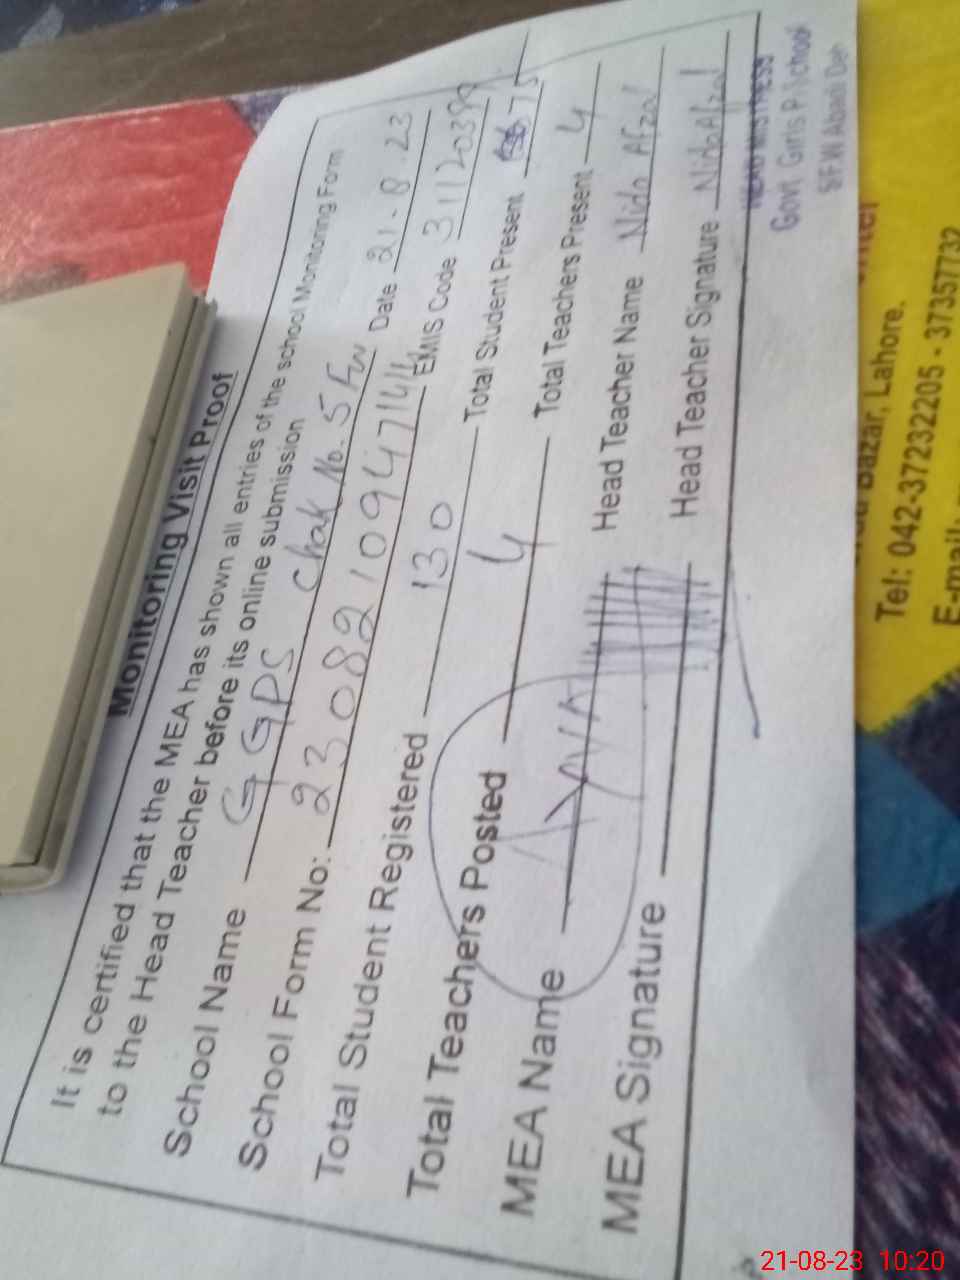 Monitoring Visit Proof
It is certified that the MEA has shown all entries of the school Monitoring Form
to the Head Teacher before its online submission
School Name GGPS Chak No. 5 FW Date 21-8-23
School Form No: 2308210947144 EMIS Code 31120389
Total Student Registered 130 Total Student Present 75
Total Teachers Posted 4 Total Teachers Present 4
MEA Name Head Teacher Name Nida Afzal
MEA Signature Head Teacher Signature Nida Afzal
HEAD MISTRESS
Govt Girls P/School
5/F.W Abadi
Bazar, Lahore.
Tel: 042-37232205 - 37357732
E-mail:
21-08-23 10:20